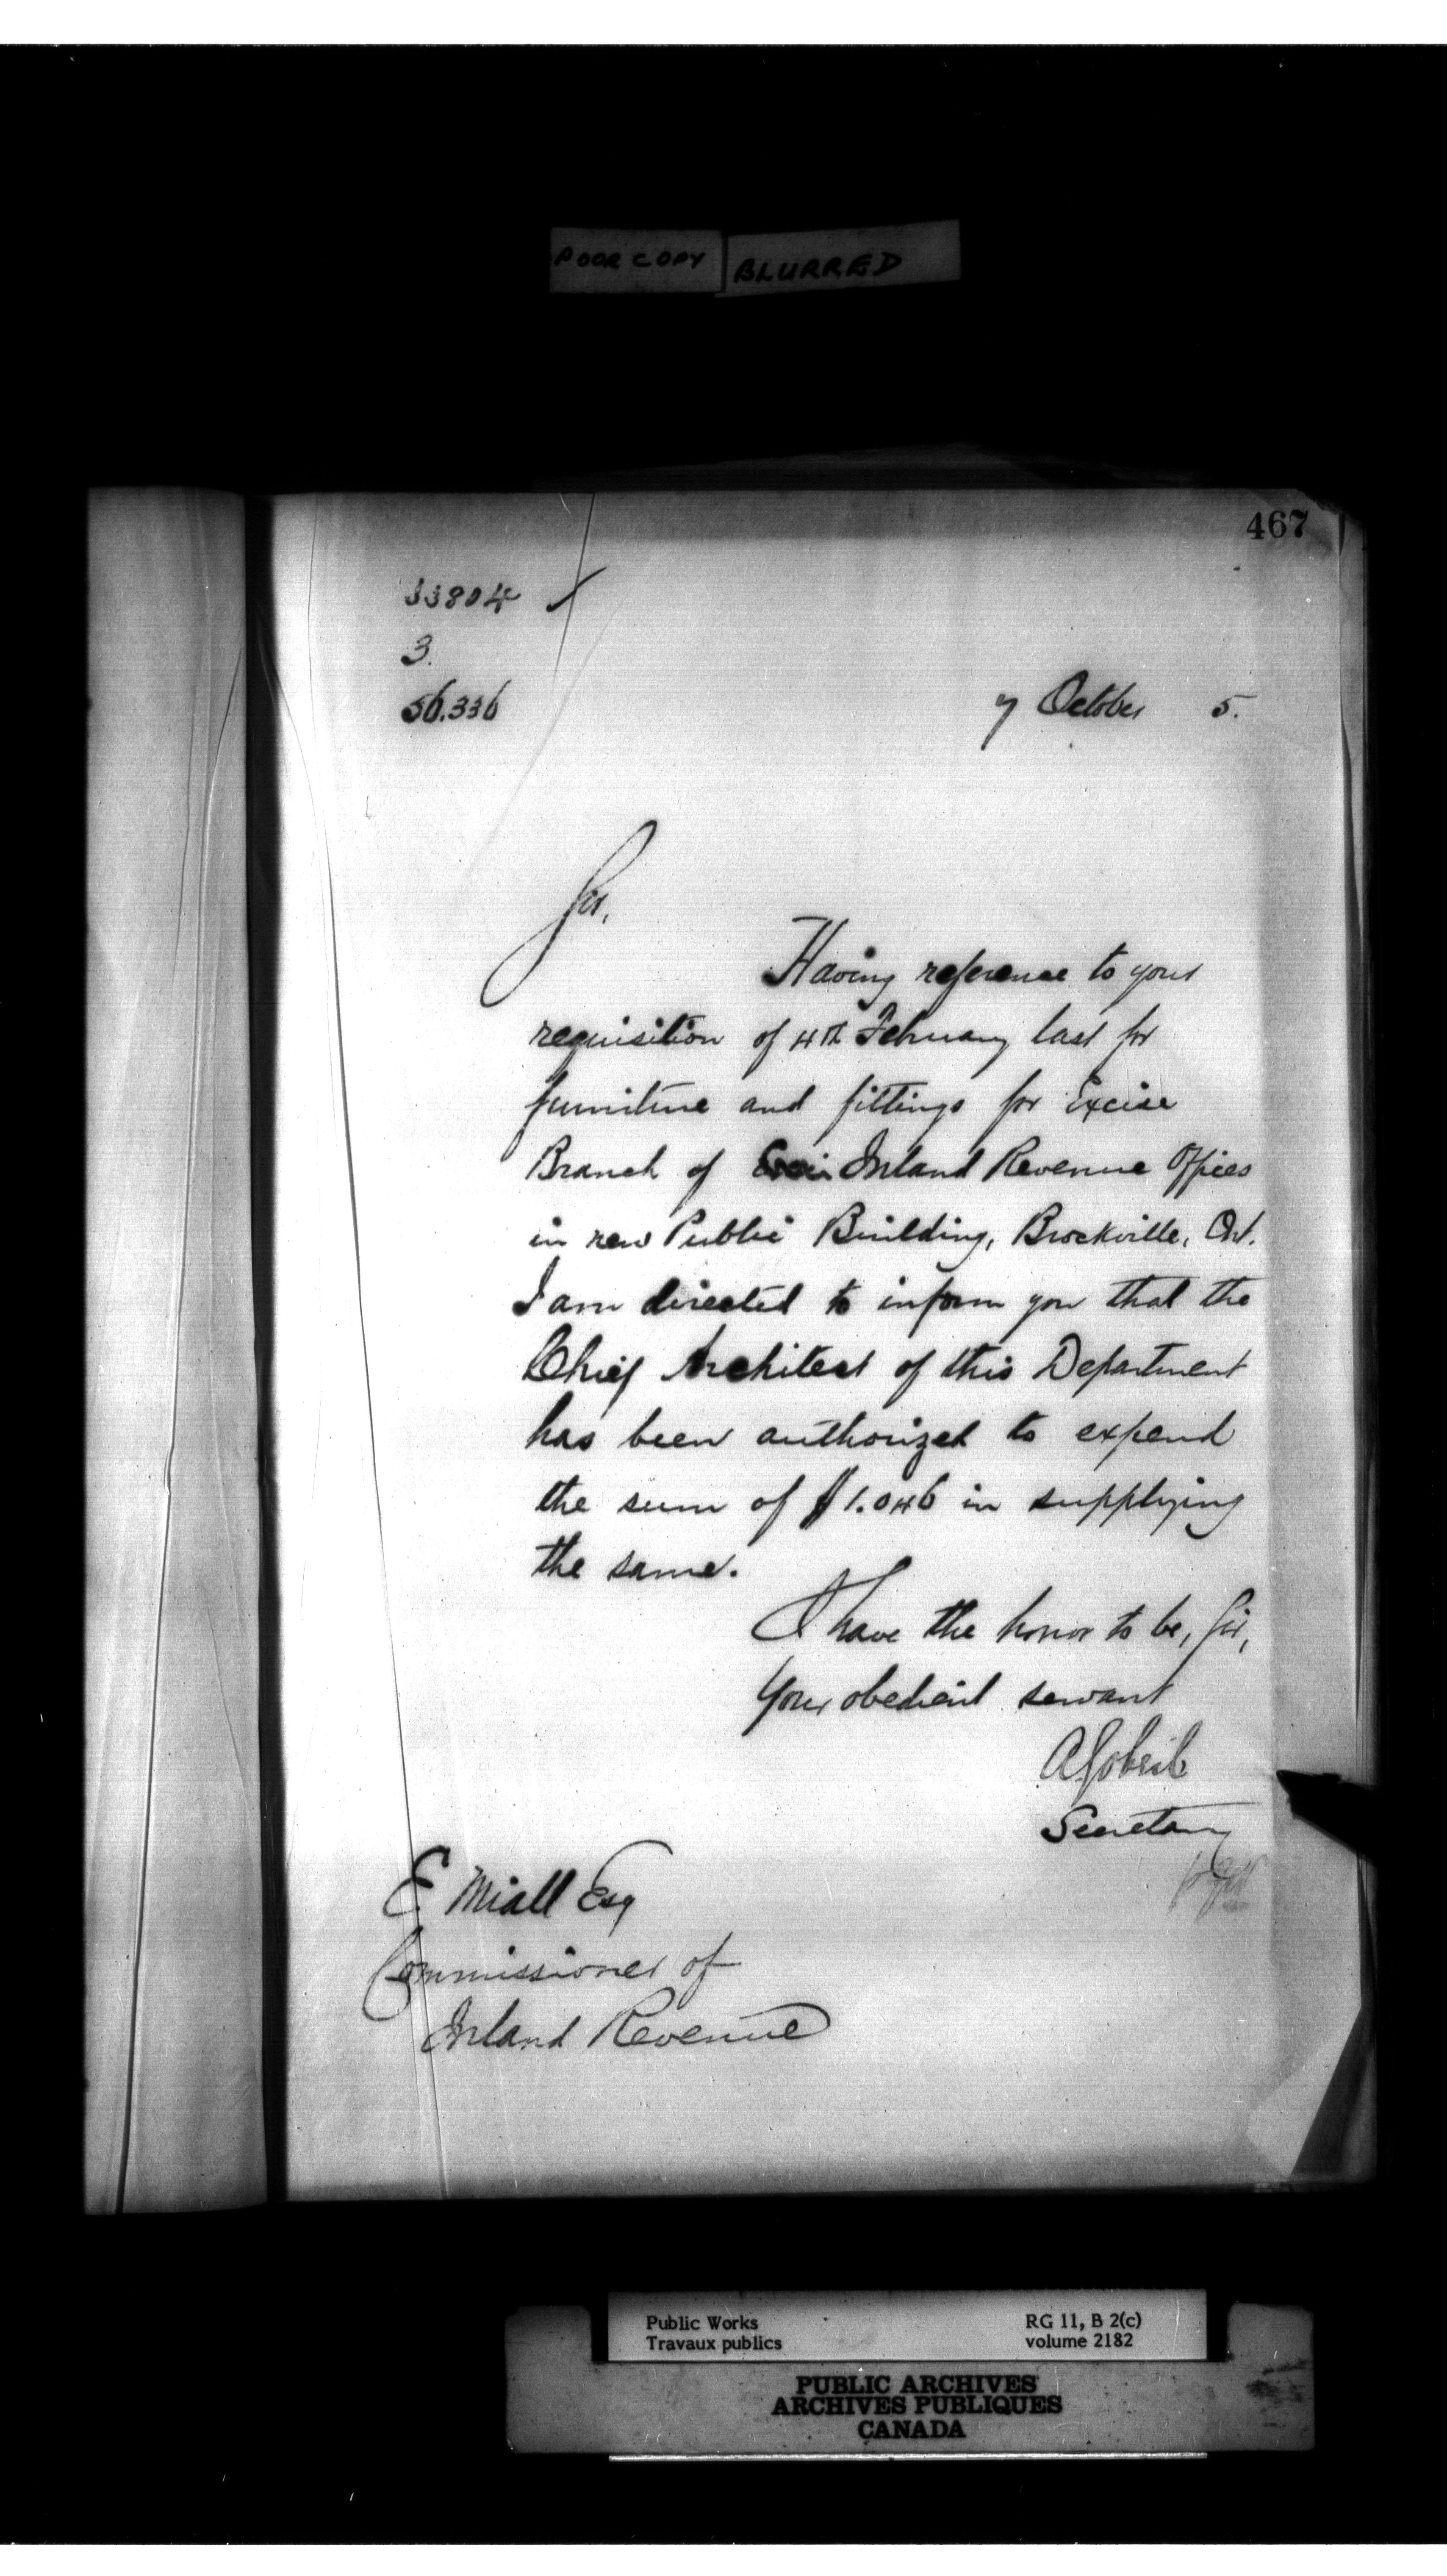 POOR COPY BLURRED
467
33804
3.
56.336
7 October 5.
Sir,
Having reference to your
requisition of 4th February last for
furniture and fittings for Excise
Branch of Inland Revenue Offices
in new Public Building, Brockville, Ont.
I am directed to inform you that the
Chief Architect of this Department
has been authorized to expend
the sum of $1.046 in supplying
the same.
I have the honor to be, Sir,
Your obedient servant
A Gobeil
Secretary
E. Miall Esq
Commissioner of
Inland Revenue
Public Works RG 11, B 2(c)
Travaux publics volume 2182
PUBLIC ARCHIVES
ARCHIVES PUBLIQUES
CANADA